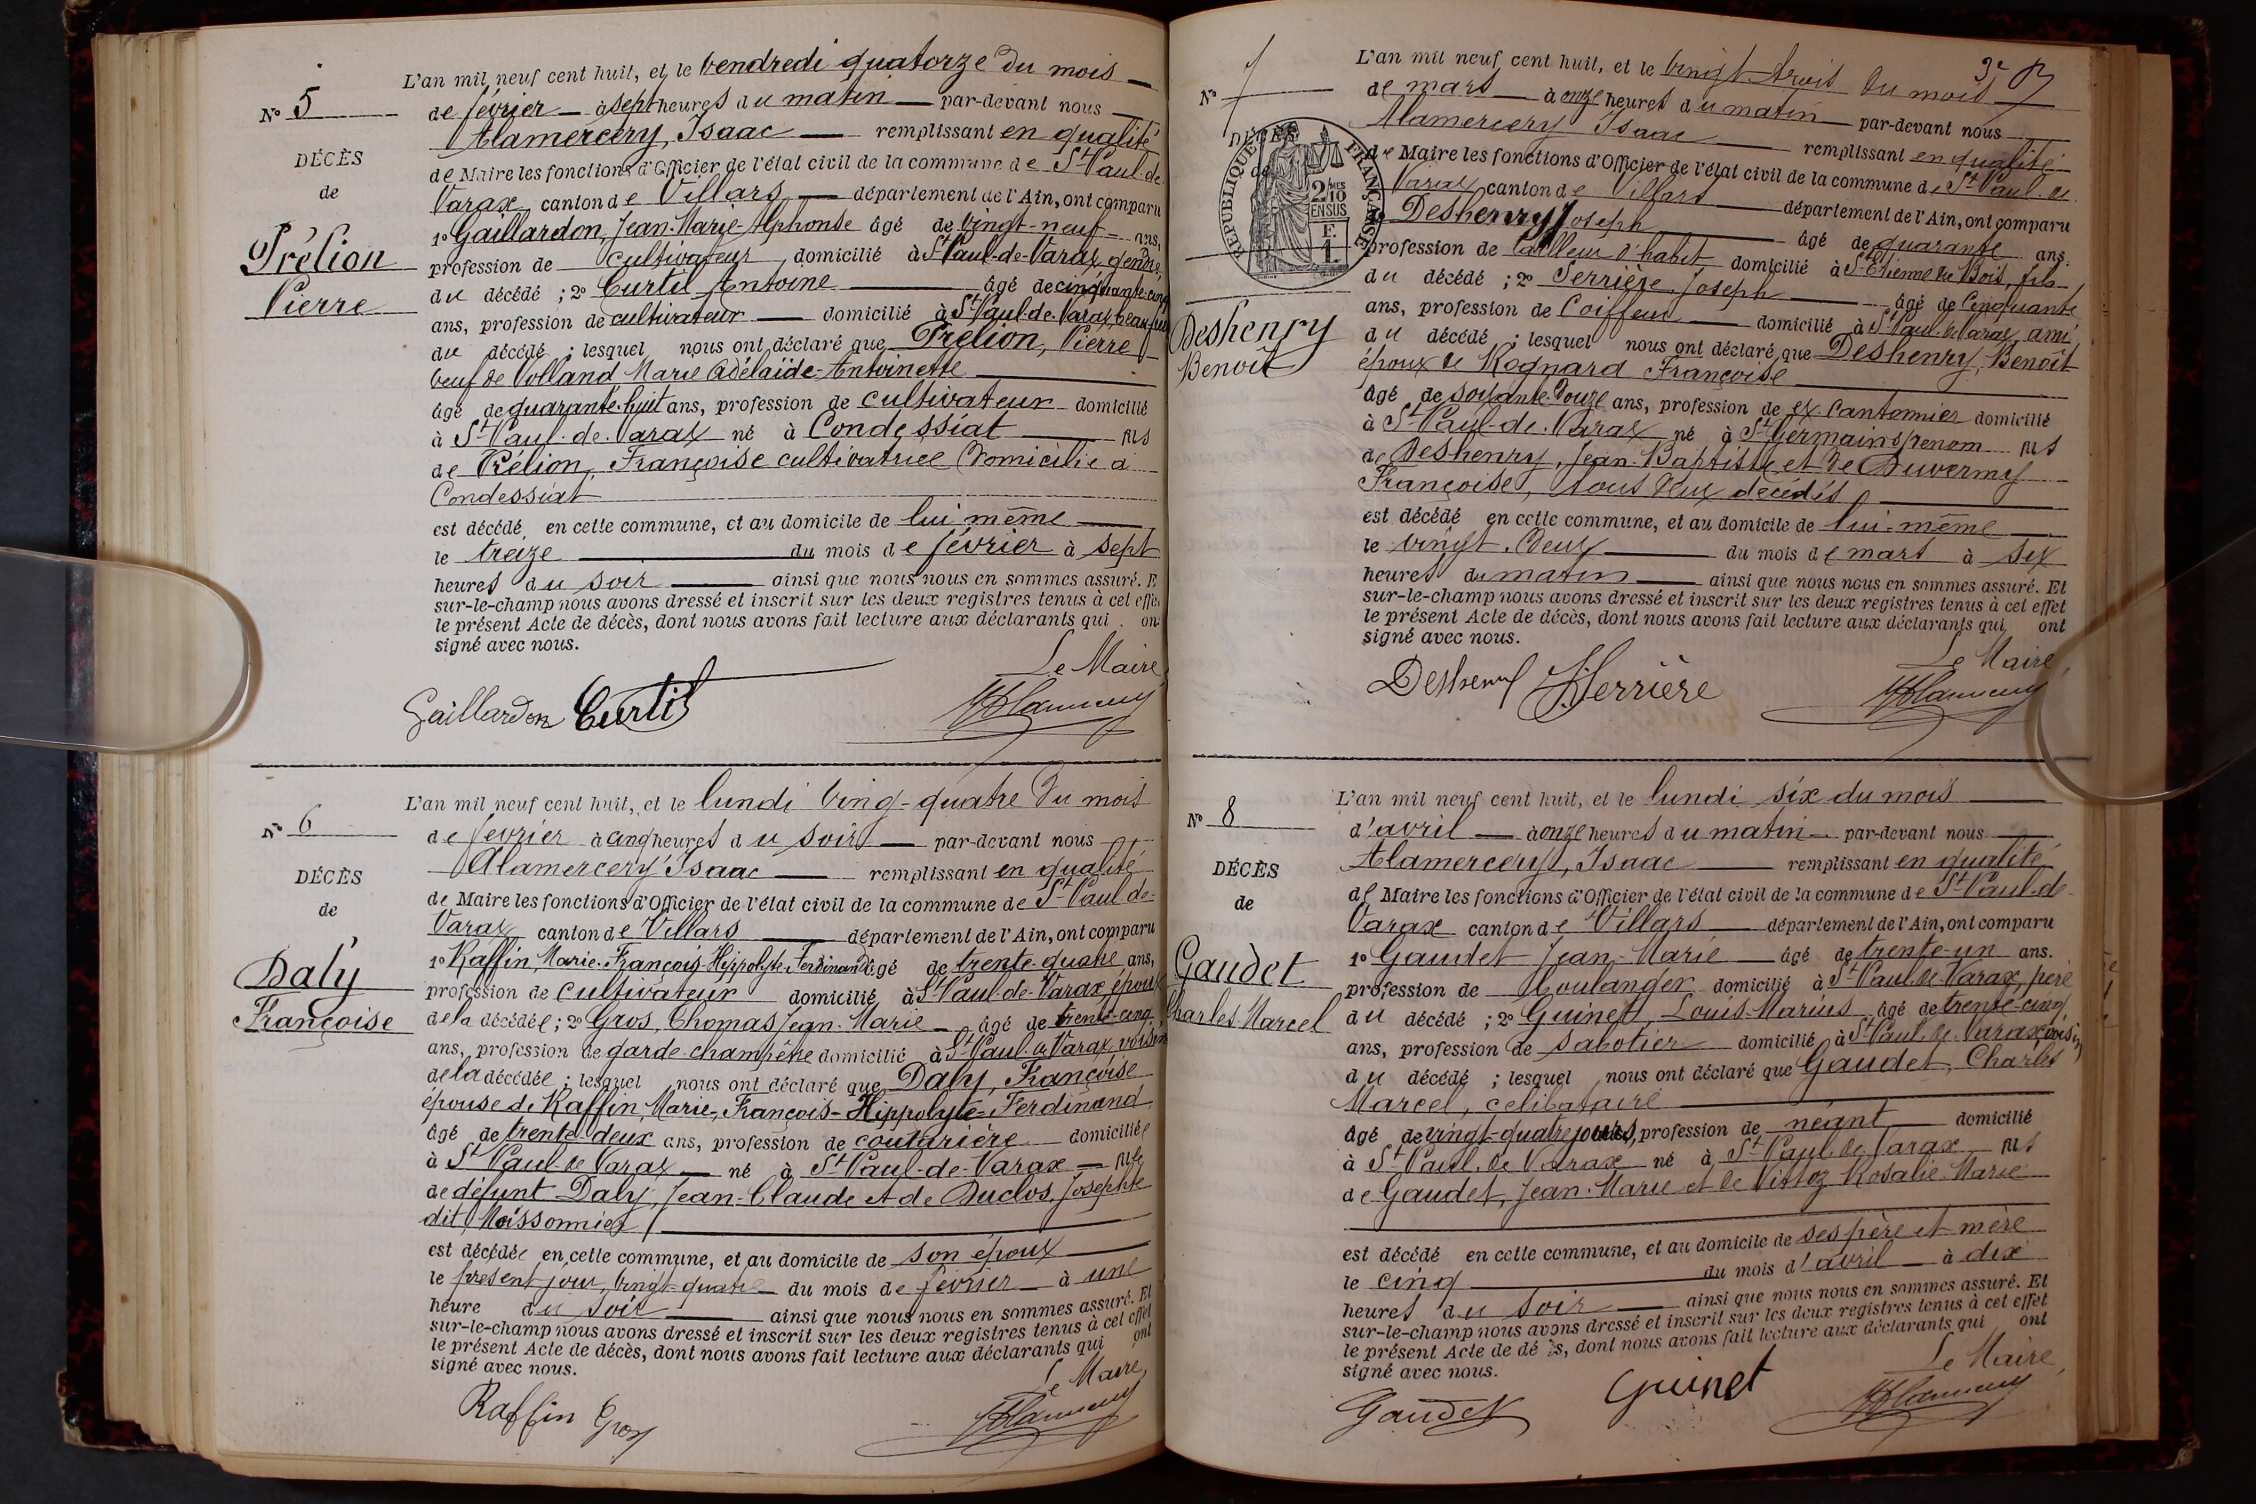 L'an mil neuf cent huit, et le vendredi quatorze du mois
N° 5
de février à sept heures du matin par-devant nous
Alamercery, Isaac remplissant en qualité
DÉCÈS
de Maire les fonctions d'Officier de l'état civil de la commune de St Paul-de-
de
Varax canton de Villars département de l'Ain, ont comparu
1° Gaillardon, Jean-Marie-Alphonse âgé de vingt-neuf ans,
Prélion
profession de cultivateur domicilié à St Paul-de-Varax gendre
Pierre
du décédé ; 2° Curtil Antoine âgé de cinquante-cinq
ans, profession de cultivateur domicilié à St Paul-de-Varax, beau
du décédé ; lesquel nous ont déclaré que Prélion, Pierre
veuf de Volland Marie Adélaïde-Antoinette
âgé de quarante-huit ans, profession de cultivateur domicilié
à St Paul-de-Varax né à Condessiat fils
de Prélion, Françoise cultivatrice domicilié à
Condessiat
est décédé en cette commune, et au domicile de lui même
le treize du mois de février à sept
heures du soir ainsi que nous nous en sommes assuré. E
sur-le-champ nous avons dressé et inscrit sur les deux registres tenus à cet effe
le présent Acte de décès, dont nous avons fait lecture aux déclarants qui on
signé avec nous.
Le Maire
Gaillardon Curtil
L'an mil neuf cent huit, et le lundi ving-quatre du mois
N° 6
de février à cinq heures du soir par-devant nous
Alamercery Isaac remplissant en qualité
DÉCÈS
de Maire les fonctions d'Officier de l'état civil de la commune de St Paul de
de
Varax canton de Villars département de l'Ain, ont comparu
1° Raffin, Marie-François-Hippolyte-Ferdinand âgé de trente-quatre ans,
Daly
profession de cultivateur domicilié à St Paul-de-Varax, époux
Françoise
de la décédée ; 2° Gros, Thomas Jean-Marie âgé de trente-cinq
ans, profession de garde-champêtre domicilié à St Paul de Varax, voisin
de la décédée ; lesquel nous ont déclaré que Daly, Françoise
épouse de Raffin, Marie-François-Hippolyte-Ferdinand
âgé de trente-deux ans, profession de couturière domiciliée
à St Paul-de Varax né à St Paul-de-Varax fille
de défunt Daly, Jean-Claude et de Duclos, Josephte
dit Moissonnier
est décédée en cette commune, et au domicile de son époux
le présent jour, vingt-quatre du mois de février à une
heure du soir ainsi que nous nous en sommes assuré. Et
sur-le-champ nous avons dressé et inscrit sur les deux registres tenus à cet effet
le présent Acte de décès, dont nous avons fait lecture aux déclarants qui ont
signé avec nous.
Le Maire
Raffin Gros
L'an mil neuf cent huit, et le vingt-trois du mois
N° 7
de mars à onze heures du matin par-devant nous
Alamercery Isaac remplissant en qualité
DÉCÈS
RÉPUBLIQUE FRANÇAISE
2 DMES 10 EN SUS
F. 1.
de Maire les fonctions d'Officier de l'état civil de la commune de St Paul-de
de
Varax canton de Villars département de l'Ain, ont comparu
Deshenry Joseph âgé de quarante ans.
profession de tailleur d'habit domicilié à St Etienne du Bois, fils
du décédé ; 2° Serrière Joseph âgé de Cinquante
Deshenry
ans, profession de Coiffeur domicilié à St Paul-de Varax ami
Benoît
du décédé ; lesquel nous ont déclaré que Deshenry, Benoît
époux de Rognard Françoise
âgé de soixante-douze ans, profession de ex Cantonnier domicilié
à St Paul-de-Varax né à St Germain s/renom fils
de Deshenry, Jean-Baptiste et de Duvermy
Françoise, tous deux décédés
est décédé en cette commune, et au domicile de lui-même
le vingt-deux du mois de mars à six
heures du matin ainsi que nous nous en sommes assuré. Et
sur-le-champ nous avons dressé et inscrit sur les deux registres tenus à cet effet
le présent Acte de décès, dont nous avons fait lecture aux déclarants qui ont
signé avec nous.
Le Maire,
Deshenry Serrière
L'an mil neuf cent huit, et le lundi six du mois
N° 8
d'avril à onze heures du matin par-devant nous
Alamercery, Isaac remplissant en qualité
DÉCÈS
de Maire les fonctions d'Officier de l'état civil de la commune de St Paul-de-
de
Varax canton de Villars département de l'Ain, ont comparu
1° Gaudet Jean-Marie âgé de trente-un ans.
Gaudet
profession de Boulanger domicilié à St Paul-de-Varax, père
Charles Marcel
du décédé ; 2° Guinet, Louis-Marius âgé de trente-cinq
ans, profession de sabotier domicilié à St Paul-de-Varax, voisin
du décédé ; lesquel nous ont déclaré que Gaudet, Charles
Marcel, célibataire
âgé de vingt-quatre jours, profession de néant domicilié
à St Paul-de Varax né à St Paul de Varax fils
de Gaudet, Jean-Marie et de Vittoz Rosalie-Marie
est décédé en cette commune, et au domicile de ses père et mère
le cinq du mois d'avril à dix
heures du soir ainsi que nous nous en sommes assuré. Et
sur-le-champ nous avons dressé et inscrit sur les deux registres tenus à cet effet
le présent Acte de dé s, dont nous avons fait lecture aux déclarants qui ont
signé avec nous.
Le Maire,
Gaudet Guinet